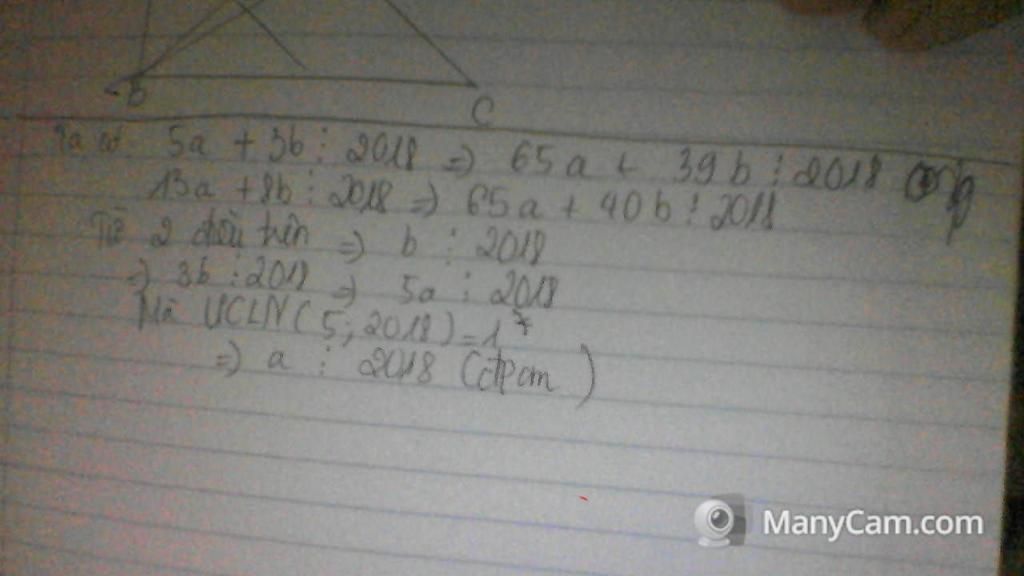 B
C
Ta có: 5a + 3b ⋮ 2018 => 65a + 39b ⋮ 2018
13a + 8b ⋮ 2018 => 65a + 40b ⋮ 2018
Từ 2 điều trên => b ⋮ 2018
=> 3b ⋮ 2018 => 5a ⋮ 2018
Mà ƯCLN(5; 2018) = 1
=> a ⋮ 2018 (đpcm)
ManyCam.com